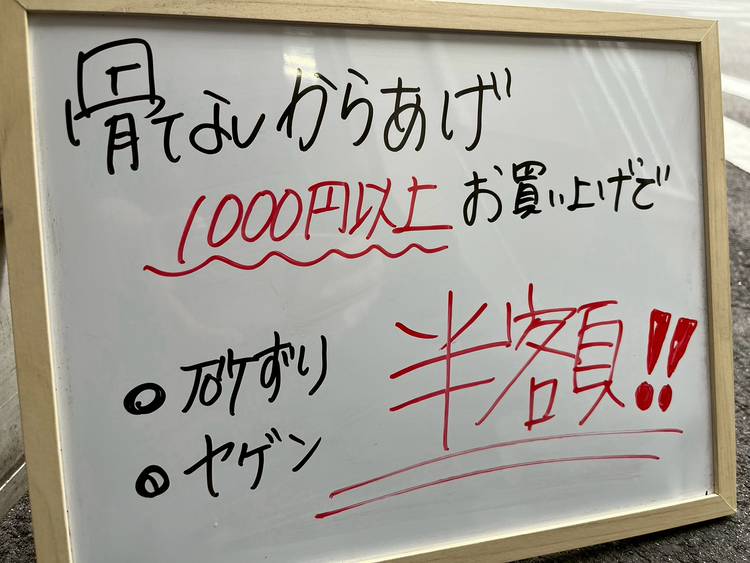 骨なしからあげ
1000円以上お買い上げで
半額!!
● 砂ずり
● ヤゲン